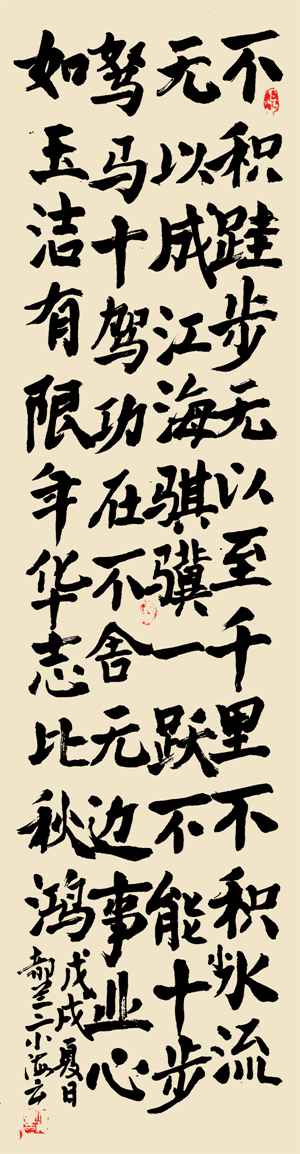 不积跬步无以至千里不积小水流
无以成江海骐骥一跃不能十步
驽马十驾功在不舍无边事业心
如玉洁有限年华志比秋鸿
戊戌夏日
兰二小海云